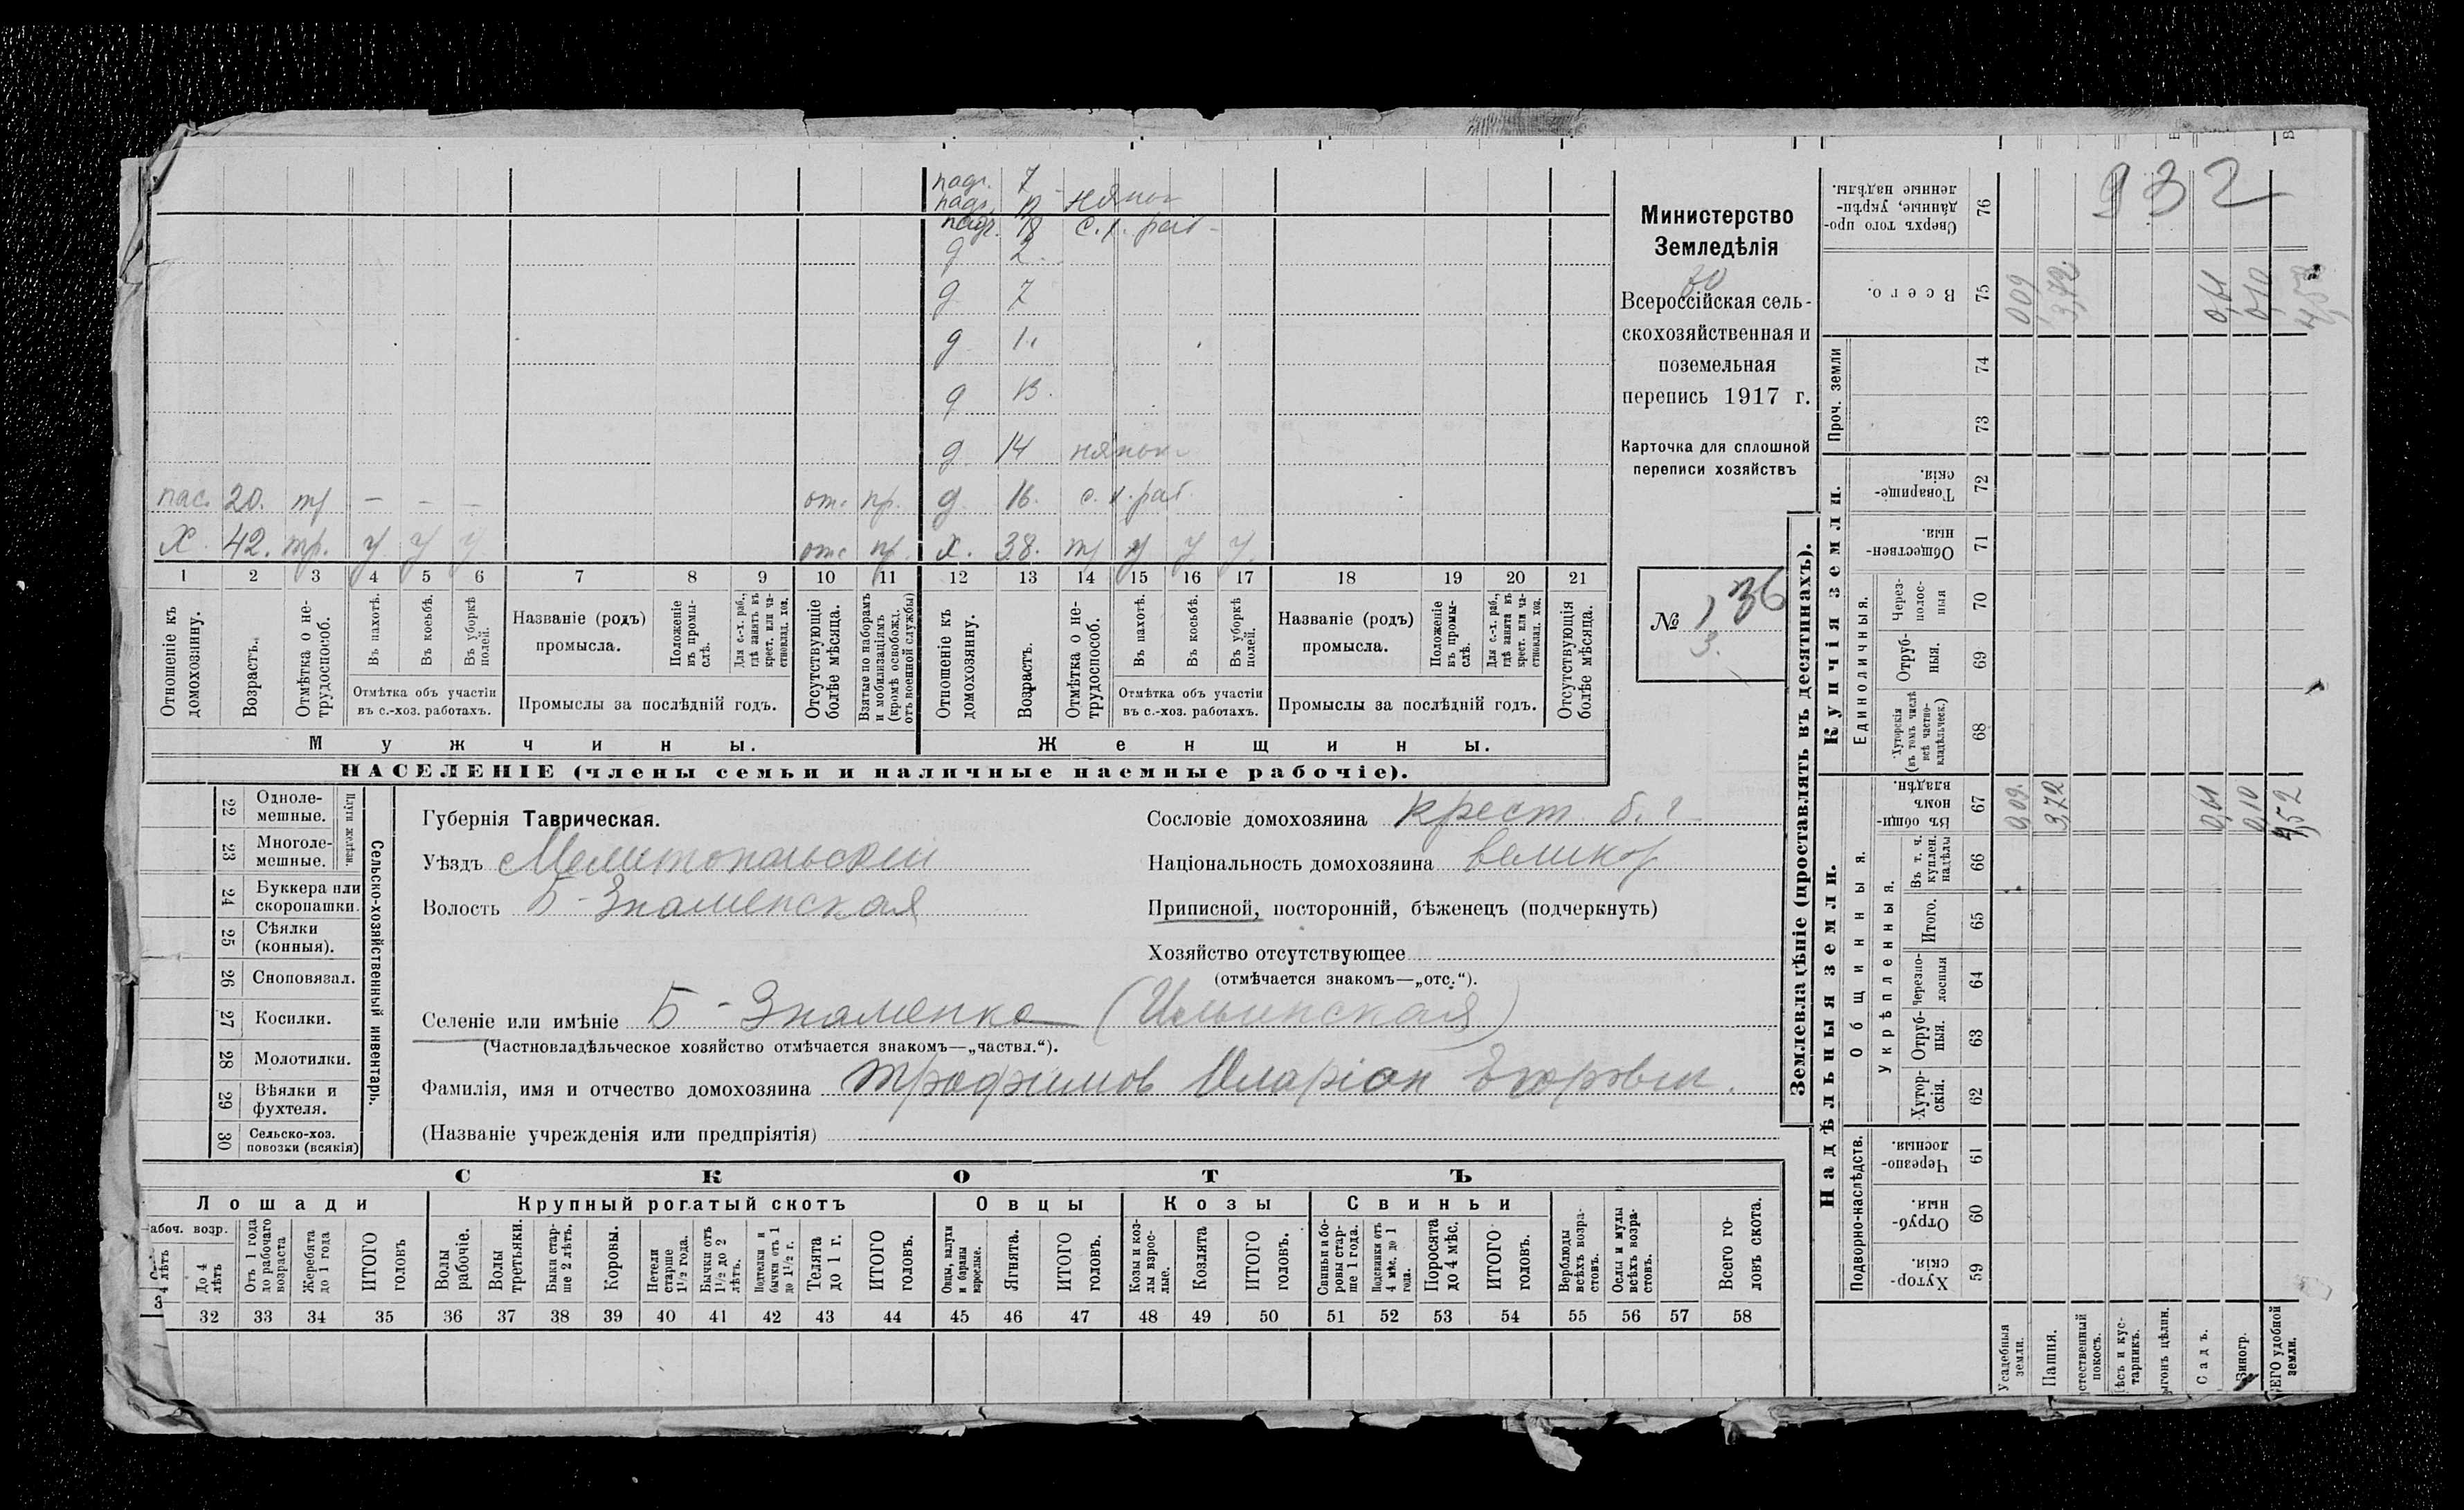 падч. 7
падч. 12 няньк
падч. 18 с. х. раб.
д 2.
д 7
д 11
д 13.
д. 14 няньк
пас. 20. тр — — — отс. пр. д 16. с. х. раб.
Х. 42. тр. у у у отс пр. х. 38. тр у у у.
1 2 3 4 5 6 7 8 9 10 11 12 13 14 15 16 17 18 19 20 21
Отношеніе къ домохозяину.
Возрастъ.
Отмѣтка о не-трудоспособ.
Въ пахотѣ.
Въ косьбѣ.
Въ уборкѣ полей.
Отмѣтка объ участіи
въ с.-хоз. работахъ.
Названіе (родъ)
промысла.
Положеніе въ промы-слѣ.
Для с.-х. раб., гдѣ занятъ въ крест. или ча-стновлад. хоз.
Промыслы за послѣдній годъ.
Отсутствующіе болѣе мѣсяца.
Взятые по наборамъ и мобилизаціямъ (кромѣ освобожд. отъ военной службы)
Отношеніе къ домохозяину.
Возрастъ.
Отмѣтка о не-трудоспособ.
Въ пахотѣ.
Въ косьбѣ.
Въ уборкѣ полей.
Отмѣтка объ участіи
въ с.-хоз. работахъ.
Названіе (родъ)
промысла.
Положеніе въ промы-слѣ.
Для с.-х. раб., гдѣ занята въ крест. или ча-стновлад. хоз.
Промыслы за послѣдній годъ.
Отсутствующія болѣе мѣсяца.
Мужчины.
Женщины.
НАСЕЛЕНІЕ (члены семьи и наличные наемные рабочіе).
Министерство
Земледѣлія
Всероссійская сель-
скохозяйственная и
поземельная
перепись 1917 г.
Карточка для сплошной
переписи хозяйствъ
№ 136
3.
22 Одноле-мешные.
23 Многоле-мешные.
Плуги желѣзн.
24 Буккера или скоропашки.
25 Сѣялки (конныя).
26 Сноповязал.
27 Косилки.
28 Молотилки.
29 Вѣялки и фухтеля.
30 Сельско-хоз. повозки (всякія)
Сельско-хозяйственный инвентарь.
Губернія Таврическая.
Уѣздъ Мелитопольскій
Волость Б-Знаменская
Сословіе домохозяина крест б. г
Національность домохозяина великор
Приписной, посторонній, бѣженецъ (подчеркнуть)
Хозяйство отсутствующее
(отмѣчается знакомъ—„отс.“).
Селеніе или имѣніе Б-Знаменка (Ильинская)
(Частновладѣльческое хозяйство отмѣчается знакомъ—„частвл.“).
Фамилія, имя и отчество домохозяина Трофимов Иларіон Егорович.
(Названіе учрежденія или предпріятія)
СКОТЪ
Лошади
Крупный рогатый скотъ
Овцы
Козы
Свиньи
абоч. возр.
4 лѣтъ
До 4 лѣтъ
Отъ 1 года до рабочаго возраста
Жеребята до 1 года
ИТОГО головъ
Волы рабочіе.
Волы третьяки.
Быки стар-ше 2 лѣтъ.
Коровы.
Нетели старше 1½ года.
Бычки отъ 1½ до 2 лѣтъ.
Подтелки и бычки отъ 1 до 1½ г.
Телята до 1 г.
ИТОГО головъ.
Овцы, валухи и бараны взрослые.
Ягнята.
ИТОГО головъ.
Козы и коз-лы взрос-лые.
Козлята
ИТОГО головъ.
Свиньи и бо-ровы стар-ше 1 года.
Подсвинки отъ 4 мѣс. до 1 года.
Поросята до 4 мѣс.
ИТОГО головъ.
Верблюды всѣхъ возра-стовъ.
Ослы и мулы всѣхъ возра-стовъ.
Всего го-ловъ скота.
32 33 34 35 36 37 38 39 40 41 42 43 44 45 46 47 48 49 50 51 52 53 54 55 56 57 58
Землевладѣніе (проставлять въ десятинахъ).
Надѣльныя земли.
Купчія земли.
Проч. земли
Подворно-наслѣдств.
Общинныя.
Укрѣпленныя.
Единоличныя.
932
Сверхъ того про-данные, укрѣп-ленные надѣлы. 76
Всего. 75 0,09 3,72 0,61 0,10 4,52
74
73
Товарище-скія. 72
Обществен-ныя. 71
Через-полос-ныя 70
Отруб-ныя. 69
Хуторскія (въ томъ числѣ всѣ частно-владѣльческ.) 68
Въ общи-номъ владѣн. 67 0,09. 3,72 0,61 0,10 4,52
Въ т. ч. куплен. надѣлы 66
Итого. 65
Черезпо-лосныя 64
Отруб-ныя. 63
Хутор-скія. 62
Черезпо-лосныя. 61
Отруб-ныя. 60
Хутор-скія. 59
Усадебныя земли.
Пашня.
стественный покосъ.
ѣсъ и кус-тарникъ.
ыгонъ цѣлин.
Садъ.
Виногр.
ЕГО удобной земли.